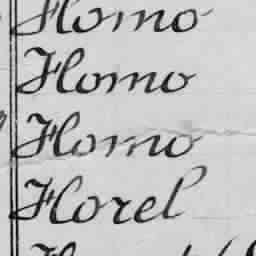 Homo
Homo
Homo
Horel